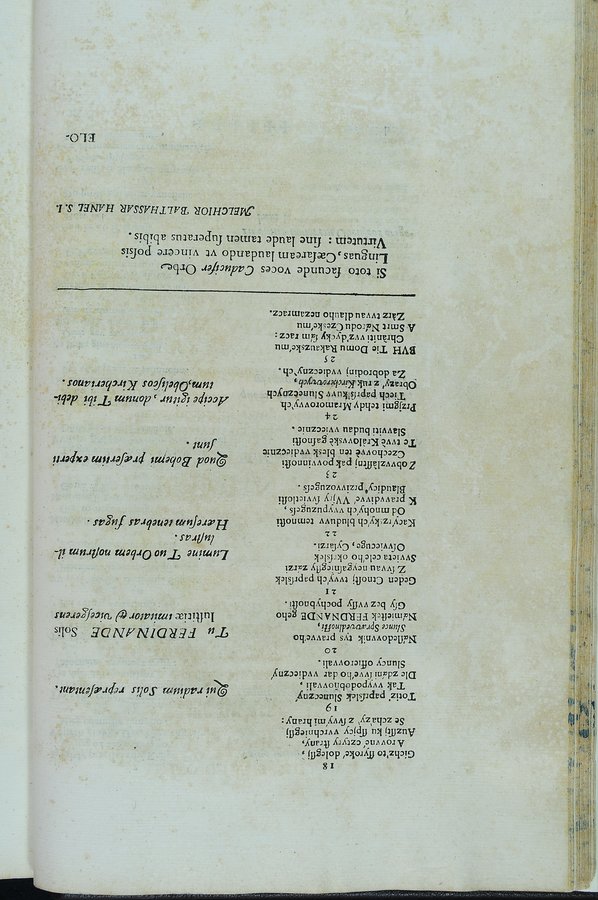 18
Gichz'to ssyroke' dolegssj,
A rovne' cztyry strany,
Auzssj ku sspjcy vvrchniegssj
Se zchazy' z svvy mi hrany:
19
Totiz' Slepsspist' Slunecznj
Tak vvypodobňovali,
Dle zdánj sve'ho dar vvdiecznj
Sluncy offierovvali.
20
Následovnik tys pravve'ho
Slunce Spravvedlnosti,
Námiestek FERDNANDE geho
Gsy bez vvssy pochybnosti.
21
Geden Ctnostj tvvy'ch paprslek
Z svau negasniegssy zarzi
Svvieta cele'ho okrslek
Osvviecuge, Cysarzi.
22
Kacyrz'ky'ch bluduvv temnosti
Od mnohy'ch vvypuzugess,
K pravvdive' Vvjry svvietlosti
Blaudicy' przivvozugess.
23
Zobvvzlásstnj pak povvinnosti
Czechovve' ten blesk vvdiecznie
Te tvve' Kralovvske' gasnosti
Slavviti budau vviecznie.
24
Przjgmi tehdy Mramorovvy'ch
Tiech paprskuvv Slunecznych
Obrazy' z ruk Kircherovvych,
Za dobrodinj vvdieczny'ch.
25
BVH Tie Domu Rakauzske'mu
Chrániti vvz'dycky sám racz:
A Smrt Národu Czeske'mu
Zárz tvvau dlauho nezamracz.
Qui radium Solis repræsentant.
Tu FERDINANDE Solis
Iustitiæ imitator & vicesgerens
Lumine Tuo Orbem nostrum il-
lustras.
Hæresum tenebras fugas.
Quod Bohemi præsertim experti
sunt.
Accipe igitur, donum Tibi debi-
tum, Obeliscos Kircherianos.
Si toto facunde voces Caducifer Orbe
Linguas, Cæsaream laudando vt vincere possis
Virtutem: sine laude tamen superatus abibis.
MELCHIOR BALTHASSAR HANEL S.I.
ELO-